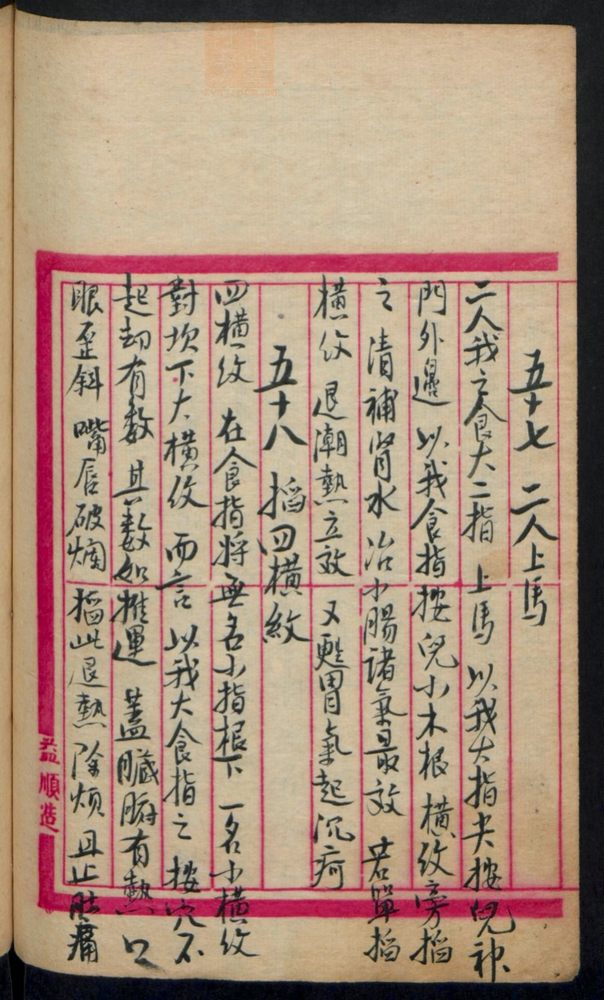 五十七 二人上馬
二人我之食大二指 上馬 以我大指尖按兒神
門外邊 以我食指按兒小木根 橫紋旁掐
之 清補腎水 治小腸諸氣最效 若單掐
橫紋 退潮熱立效 又甦胃氣起沉疴
五十八 掐四橫紋
四橫紋 在食指將無名小指根下 一名小橫紋
對坎下大橫紋 而言 以我大食指之 按穴不
起却有數 其數如推運 蓋臟腑有熱 口
眼歪斜 嘴唇破爛 掐此退熱 除煩 且止肚痛
益順造